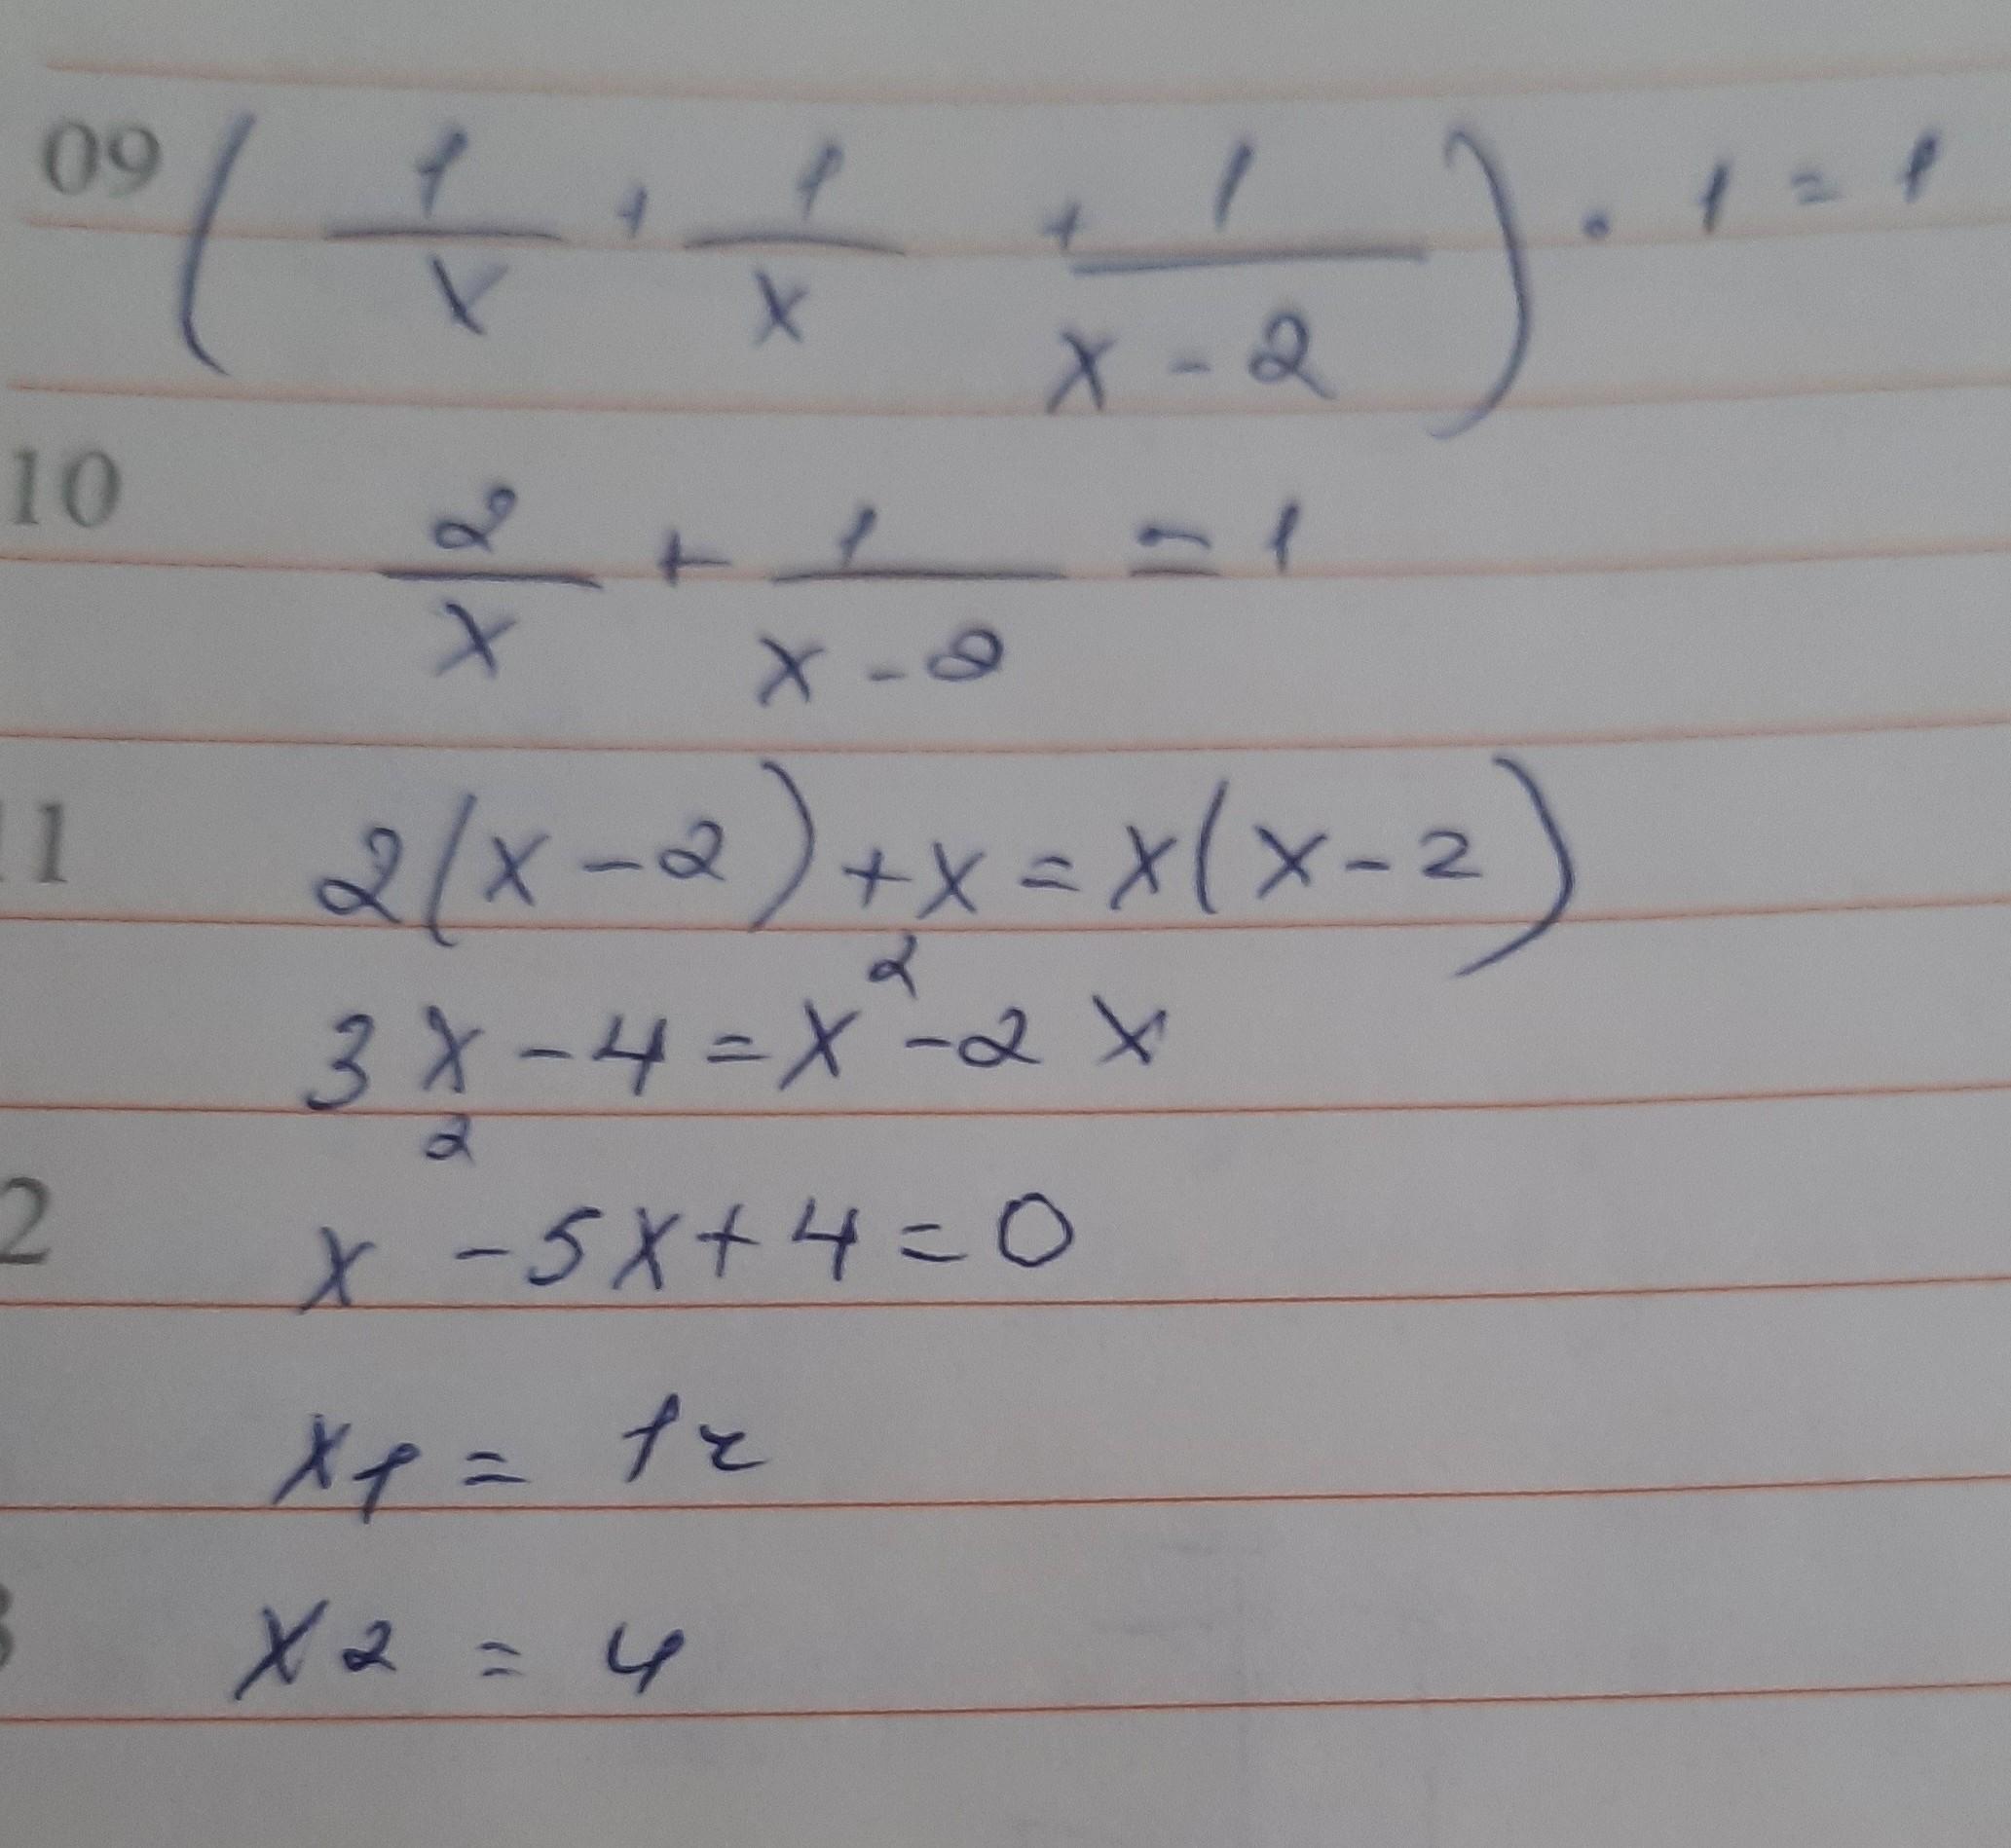 09 ( 1/x + 1/x + 1/(x - 2) ) · 1 = 1
10 2/x + 1/(x - 2) = 1
11 2(x - 2) + x = x(x - 2)
3x - 4 = x² - 2x
2 x² - 5x + 4 = 0
x1 =
x2 = 4